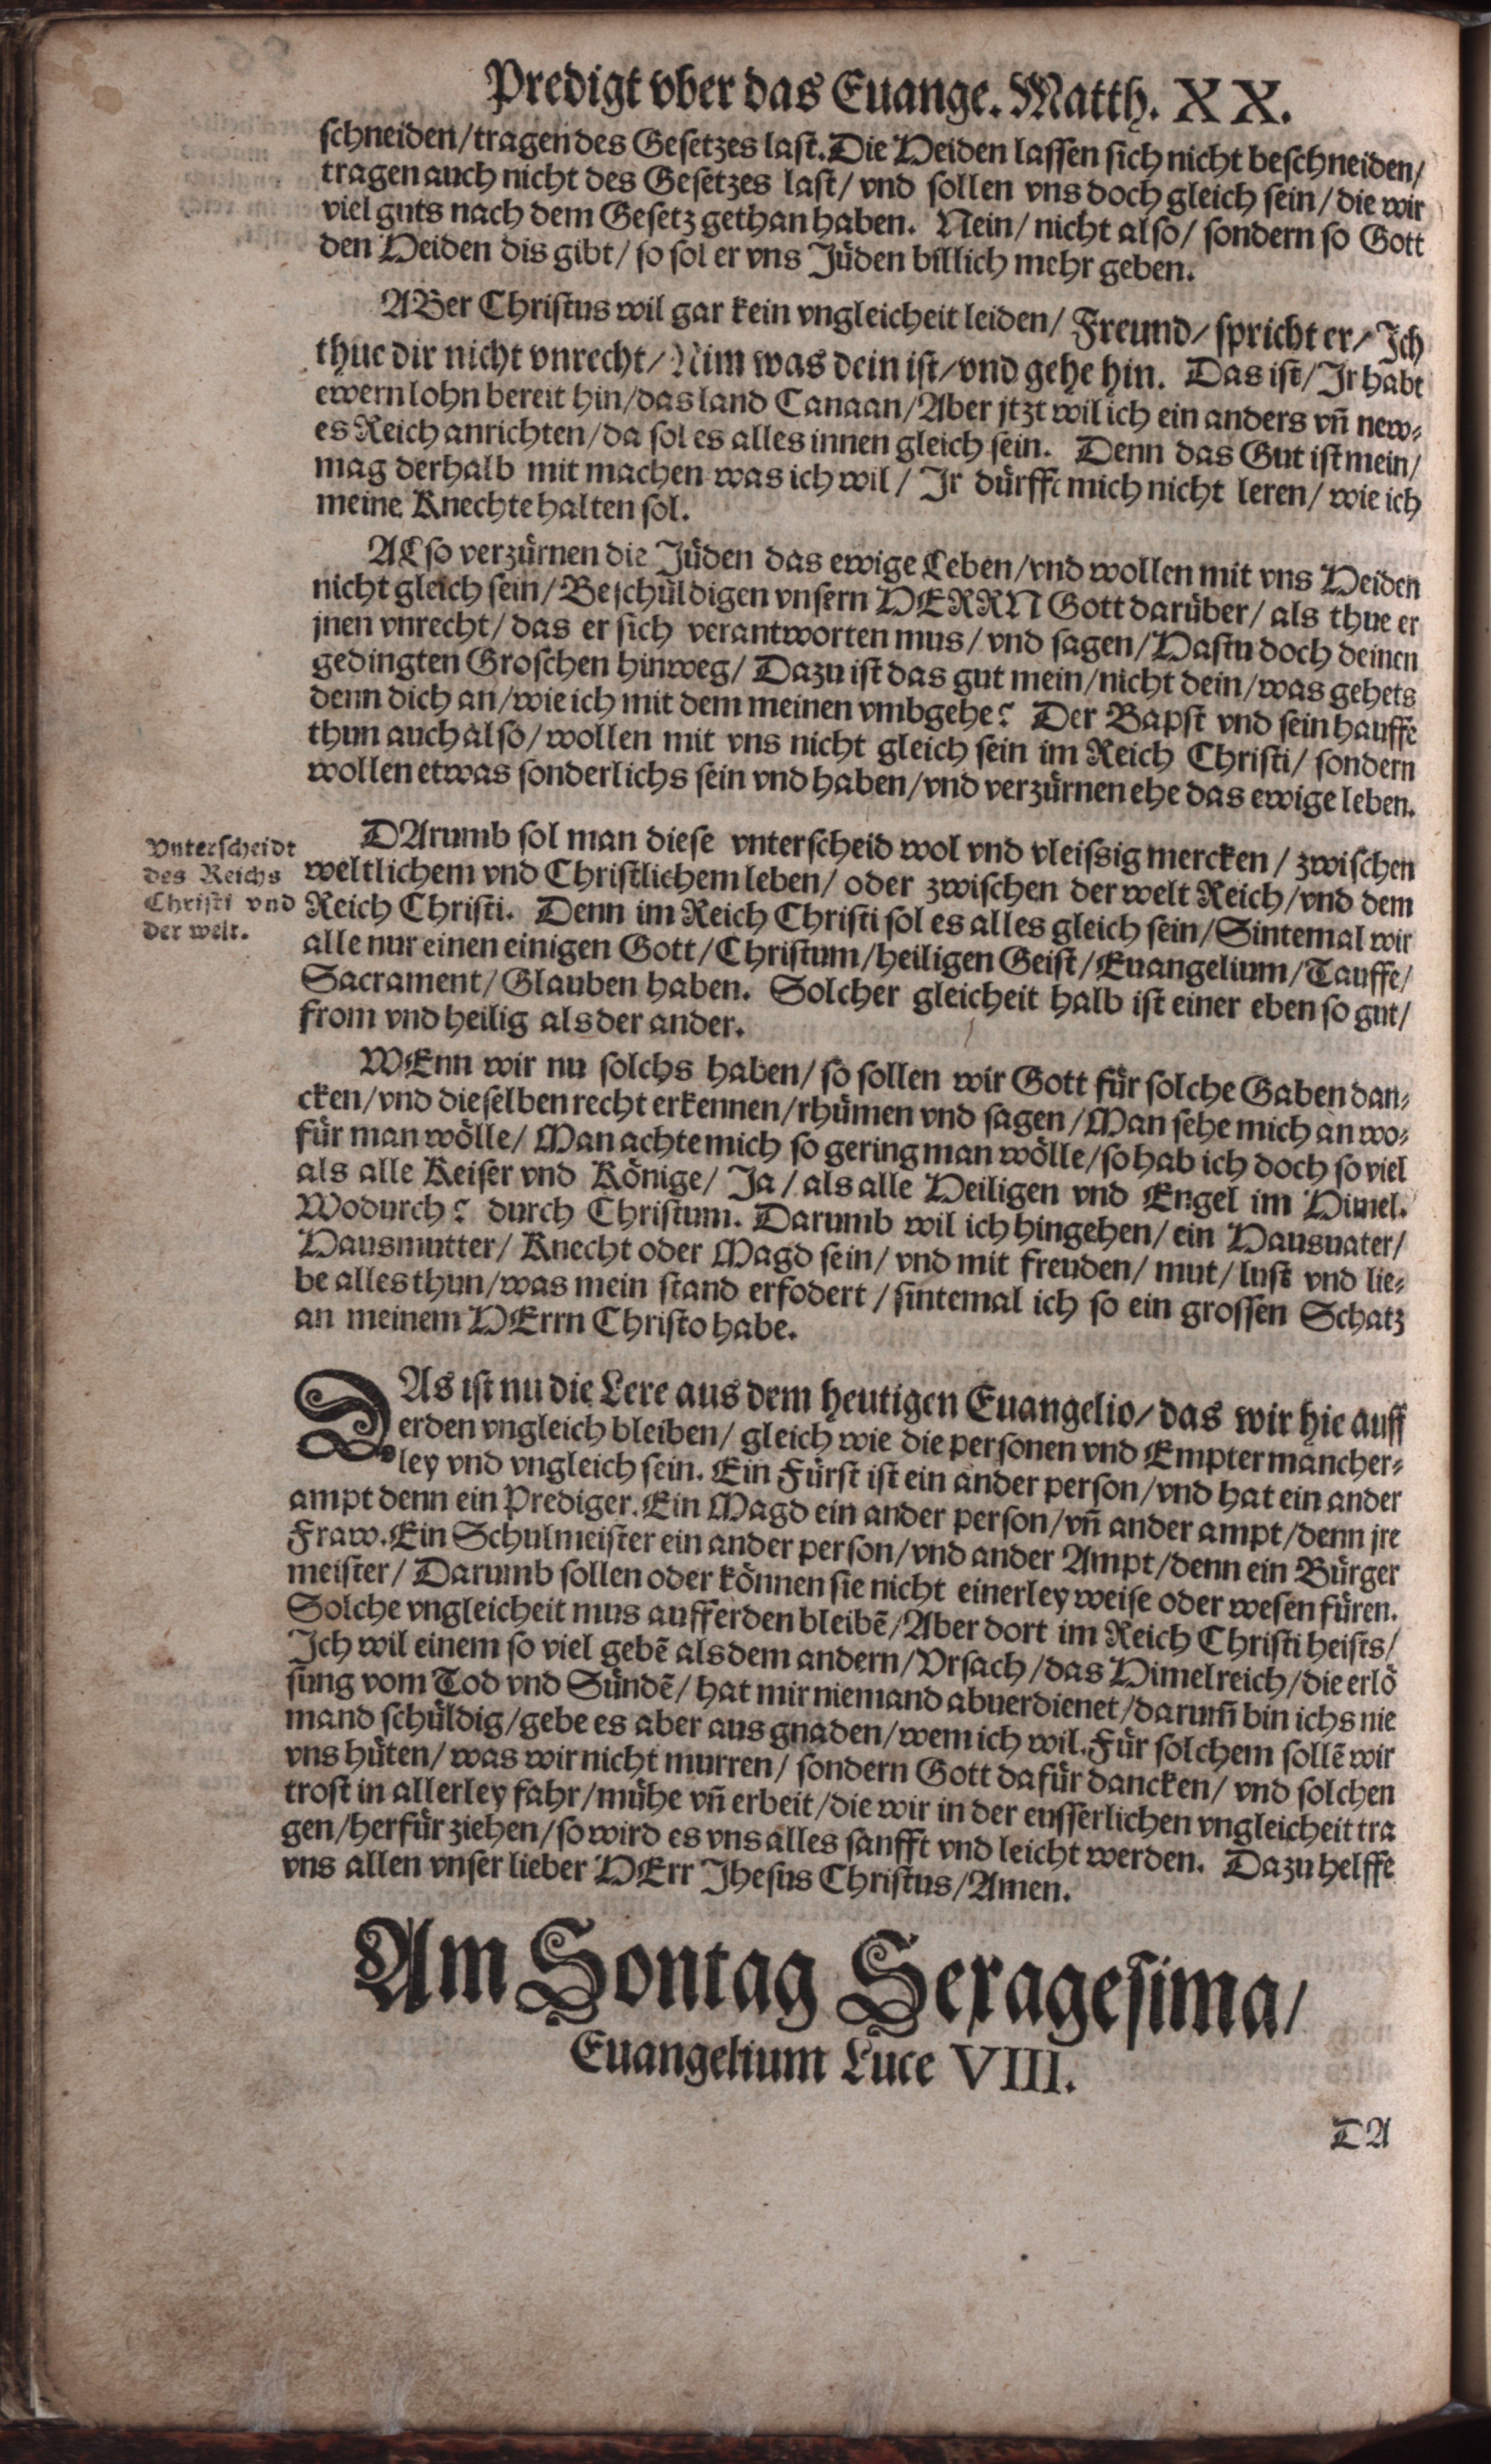 Predigt vber das Euange. Matth. XX.
schneiden/tragen des Gesetzes last. Die Heiden lassen sich nicht beschneiden/
tragen auch nicht des Gesetzes last/ vnd sollen vns doch gleich sein/ die wir
viel guts nach dem Gesetz gethan haben. Nein/ nicht also/ sondern so Gott
den Heiden dis gibt/ so sol er vns Jüden billich mehr geben.
ABer Christus wil gar kein vngleicheit leiden/ Freund/ spricht er/ Ich
thue dir nicht vnrecht/ Nim was dein ist/ vnd gehe hin. Das ist/ Ir habt
ewern lohn bereit hin/das land Canaan/Aber jtzt wil ich ein anders vñ new⸗
es Reich anrichten/da sol es alles innen gleich sein. Denn das Gut ist mein/
mag derhalb mit machen was ich wil/ Ir dürfft mich nicht leren/ wie ich
meine Knechte halten sol.
ALso verzürnen die Jüden das ewige Leben/vnd wollen mit vns Heiden
nicht gleich sein/ Beschüldigen vnsern HERRN Gott darüber/ als thue er
jnen vnrecht/ das er sich verantworten mus/ vnd sagen/ Hastu doch deinen
gedingten Groschen hinweg/ Dazu ist das gut mein/nicht dein/was gehets
denn dich an/wie ich mit dem meinen vmbgehe? Der Bapst vnd sein hauffe
thun auch also/ wollen mit vns nicht gleich sein im Reich Christi/ sondern
wollen etwas sonderlichs sein vnd haben/vnd verzürnen ehe das ewige leben.
Vnterscheidt
des Reichs
Christi vnd
der welt.
DArumb sol man diese vnterscheid wol vnd vleissig mercken/ zwischen
weltlichem vnd Christlichem leben/ oder zwischen der welt Reich/vnd dem
Reich Christi. Denn im Reich Christi sol es alles gleich sein/Sintemal wir
alle nur einen einigen Gott/Christum/heiligen Geist/Euangelium/Tauffe/
Sacrament/ Glauben haben. Solcher gleicheit halb ist einer eben so gut/
from vnd heilig als der ander.
WEnn wir nu solchs haben/ so sollen wir Gott für solche Gaben dan⸗
cken/vnd dieselben recht erkennen/rhümen vnd sagen/Man sehe mich an wo⸗
für man wölle/ Man achte mich so gering man wölle/so hab ich doch so viel
als alle Keiser vnd Könige/ Ja/ als alle Heiligen vnd Engel im Himel.
Wodurch? durch Christum. Darumb wil ich hingehen/ ein Hausuater/
Hausmutter/ Knecht oder Magd sein/ vnd mit freuden/ mut/ lust vnd lie⸗
be alles thun/was mein stand erfodert/ sintemal ich so ein grossen Schatz
an meinem HErrn Christo habe.
DAs ist nu die Lere aus dem heutigen Euangelio/ das wir hie auff
erden vngleich bleiben/ gleich wie die personen vnd Empter mancher⸗
ley vnd vngleich sein. Ein Fürst ist ein ander person/vnd hat ein ander
ampt denn ein Prediger. Ein Magd ein ander person/vñ ander ampt/denn jre
Fraw. Ein Schulmeister ein ander person/vnd ander Ampt/denn ein Bürger
meister/ Darumb sollen oder können sie nicht einerley weise oder wesen füren.
Solche vngleicheit mus auff erden bleibē/Aber dort im Reich Christi heists/
Ich wil einem so viel gebē als dem andern/Vrsach/das Himelreich/die erlö
sung vom Tod vnd Sündē/ hat mir niemand abuerdienet/darum̄ bin ichs nie
mand schüldig/gebe es aber aus gnaden/wem ich wil. Für solchem sollē wir
vns hüten/ was wir nicht murren/ sondern Gott dafür dancken/ vnd solchen
trost in allerley fahr/mühe vñ erbeit/die wir in der eusserlichen vngleicheit tra
gen/herfür ziehen/so wird es vns alles sanfft vnd leicht werden. Dazu helffe
vns allen vnser lieber HErr Jhesus Christus/Amen.
Am Sontag Sexagesima/
Euangelium Luce VIII.
DA